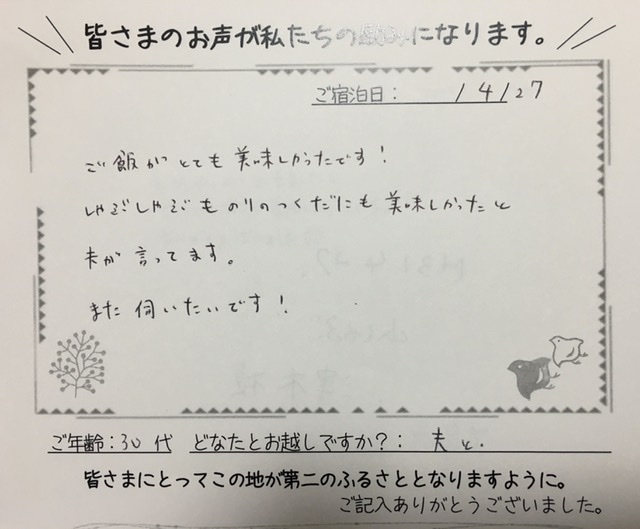 皆さまのお声が私たちの になります。
ご宿泊日: /4/27
ご飯がとても美味しかったです!
しゃぶしゃぶものりのつくだにも美味しかったと
夫が言ってます。
また伺いたいです!
ご年齢:30代 どなたとお越しですか?: 夫と.
皆さまにとってこの地が第二のふるさととなりますように。
ご記入ありがとうございました。